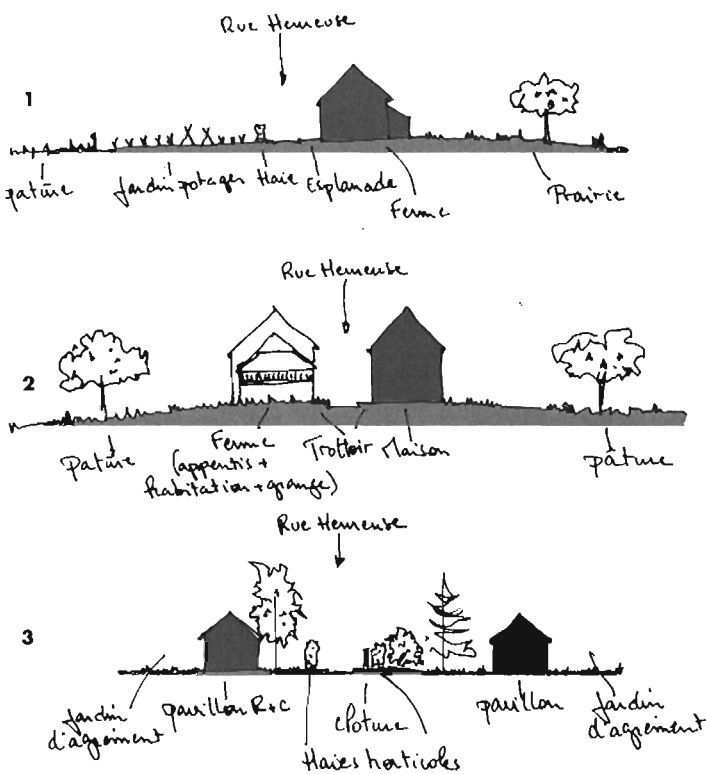 Rue Hemeuse
1
pature
Jardin potager
Haie
Esplanade
Ferme
Prairie
Rue Hemeuse
2
Pature
Ferme
(appentis +
habitation + grange)
Trottoir
Maison
pâture
Rue Hemeuse
3
Jardin
d'agrément
pavillon R+C
cloture
Haies horticoles
pavillon
Jardin
d'agrément